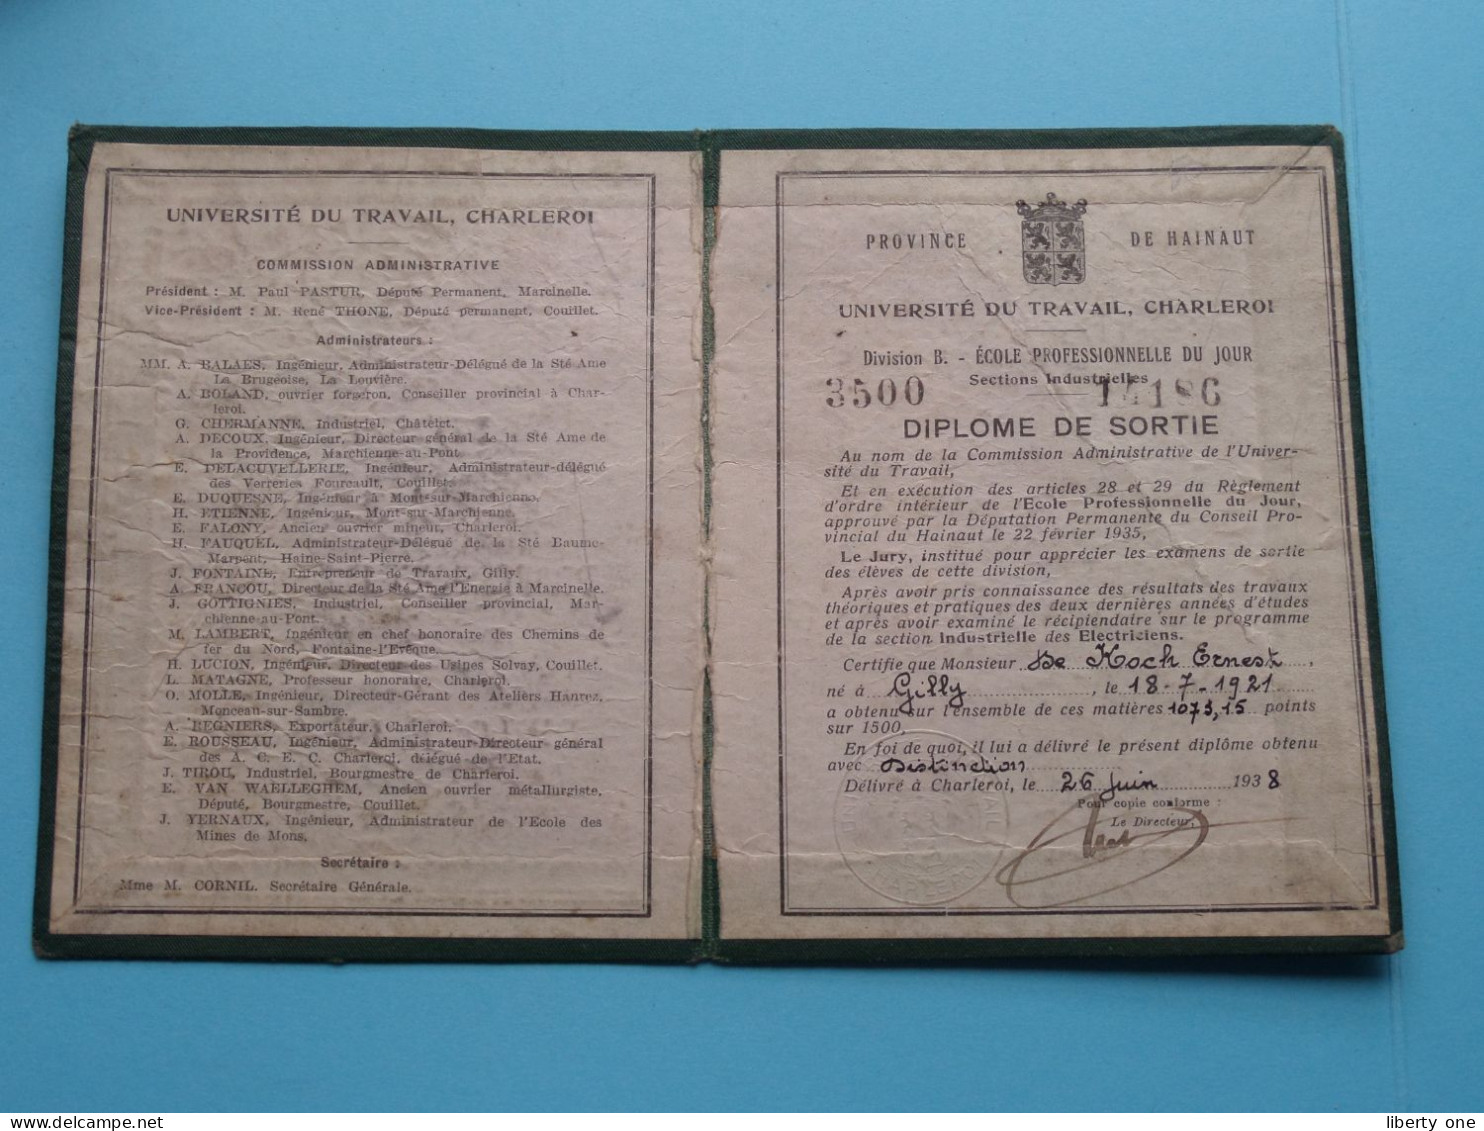 UNIVERSITÉ DU TRAVAIL, CHARLEROI
COMMISSION ADMINISTRATIVE
Président : M. Paul PASTUR, Député Permanent, Marcinelle.
Vice-Président : M. René THONE, Député permanent, Couillet.
Administrateurs :
MM. A. BALAES, Ingénieur, Administrateur-Délégué de la Sté Ame
La Brugeoise, La Louvière.
A. BOLAND, ouvrier forgeron, Conseiller provincial à Char-
leroi.
G. CHERMANNE, Industriel, Châtelet.
A. DECOUX, Ingénieur, Directeur général de la Sté Ame de
la Providence, Marchienne-au-Pont.
E. DELACUVELLERIE, Ingénieur, Administrateur-délégué
des Verreries Fourcault, Couillet.
E. DUQUESNE, Ingénieur à Mont-sur-Marchienne.
H. ETIENNE, Ingénieur, Mont-sur-Marchienne.
E. FALONY, Ancien ouvrier mineur, Charleroi.
H. FAUQUEL, Administrateur-Délégué de la Sté Baume-
Marpent, Haine-Saint-Pierre.
J. FONTAINE, Entrepreneur de Travaux, Gilly.
A. FRANCOU, Directeur de la Sté Ame l'Energie à Marcinelle.
J. GOTTIGNIES, Industriel, Conseiller provincial, Mar-
chienne-au-Pont.
M. LAMBERT, Ingénieur en chef honoraire des Chemins de
fer du Nord, Fontaine-l'Evêque.
H. LUCION, Ingénieur, Directeur des Usines Solvay, Couillet.
L. MATAGNE, Professeur honoraire, Charleroi.
O. MOLLE, Ingénieur, Directeur-Gérant des Ateliers Hanrez,
Monceau-sur-Sambre.
A. REGNIERS, Exportateur, Charleroi.
E. ROUSSEAU, Ingénieur, Administrateur-Directeur général
des A. C. E. C. Charleroi, délégué de l'Etat.
J. TIROU, Industriel, Bourgmestre de Charleroi.
E. VAN WAELLEGHEM, Ancien ouvrier métallurgiste,
Député, Bourgmestre, Couillet.
J. YERNAUX, Ingénieur, Administrateur de l'Ecole des
Mines de Mons.
Secrétaire :
Mme M. CORNIL, Secrétaire Générale.
PROVINCE DE HAINAUT
UNIVERSITÉ DU TRAVAIL, CHARLEROI
Division B. - ÉCOLE PROFESSIONNELLE DU JOUR
Sections Industrielles
3500 14186
DIPLOME DE SORTIE
Au nom de la Commission Administrative de l'Univer-
sité du Travail,
Et en exécution des articles 28 et 29 du Règlement
d'ordre intérieur de l'Ecole Professionnelle du Jour,
approuvé par la Députation Permanente du Conseil Pro-
vincial du Hainaut le 22 février 1935,
Le Jury, institué pour apprécier les examens de sortie
des élèves de cette division,
Après avoir pris connaissance des résultats des travaux
théoriques et pratiques des deux dernières années d'études
et après avoir examiné le récipiendaire sur le programme
de la section Industrielle des Electriciens.
Certifie que Monsieur De Koch Ernest,
né à Gilly, le 18-7-1921
a obtenu sur l'ensemble de ces matières 1073,15 points
sur 1500,
En foi de quoi, il lui a délivré le présent diplôme obtenu
avec Distinction
Délivré à Charleroi, le 26 Juin 1938
Pour copie conforme :
Le Directeur,
liberty one